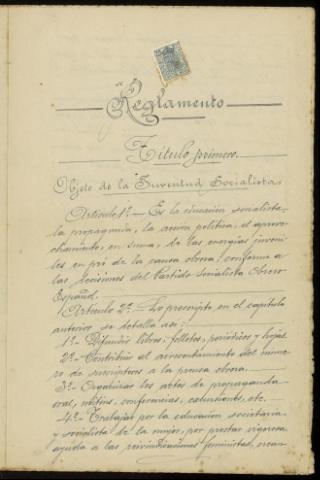 Reglamento
Título primero.
Objeto de la Juventud Socialista.
Artículo 1º.- Es la educación socialista,
la propaganda, la acción política, el aprove-
chamiento, en suma, de las energías juveni-
les en pró de la causa obrera, conforme a
las decisiones del Partido Socialista Obrero
Español.
Artículo 2º.- Lo prescripto en el capítulo
anterior se detalla así:
1º.- Difundir libros, folletos, periódicos y hojas.
2º.- Contribuir al acrecentamiento del núme-
ro de suscriptores a la prensa obrera.
3º.- Organizar los actos de propaganda
oral, mitins, conferencias, excursiones, etc.
4º.- Trabajar por la educación societaria
y socialista de la mujer, por prestar vigorosa
ayuda a las reivindicaciones feministas, crean